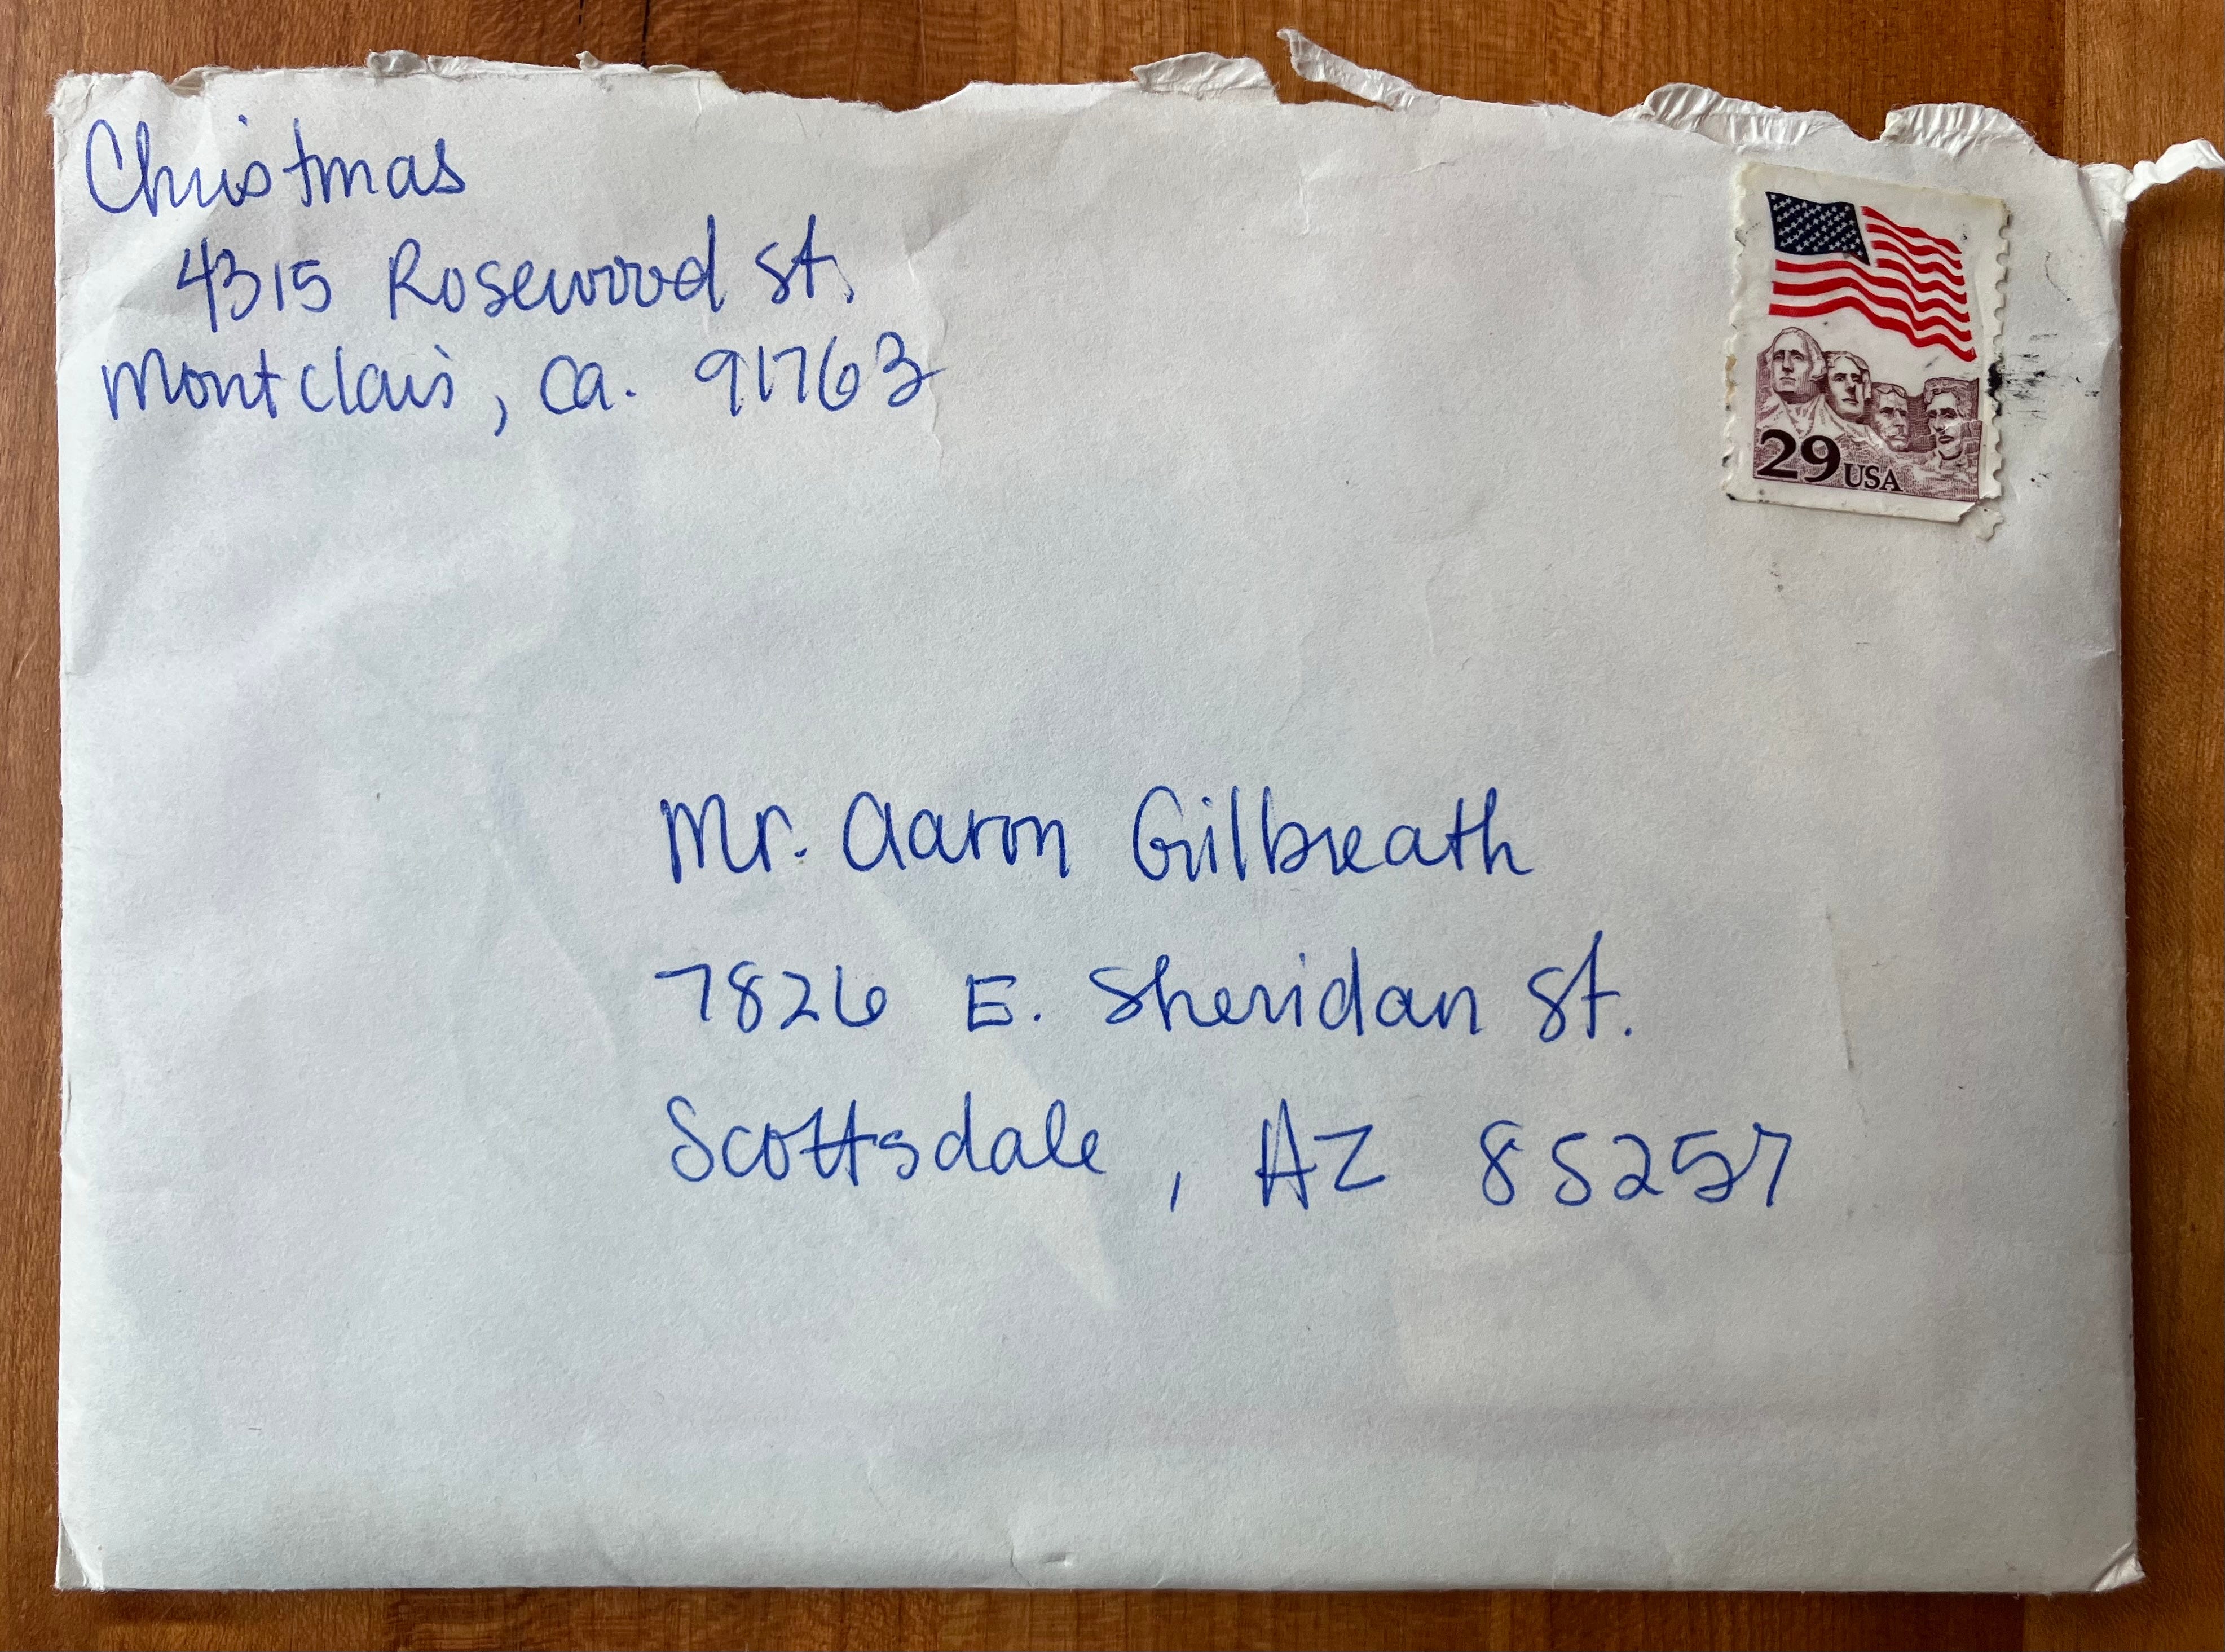 Christmas
4315 Rosewood St.
Montclair, Ca. 91763
29 USA
Mr. Aaron Gilbreath
7826 E. Sheridan St.
Scottsdale, AZ 85257